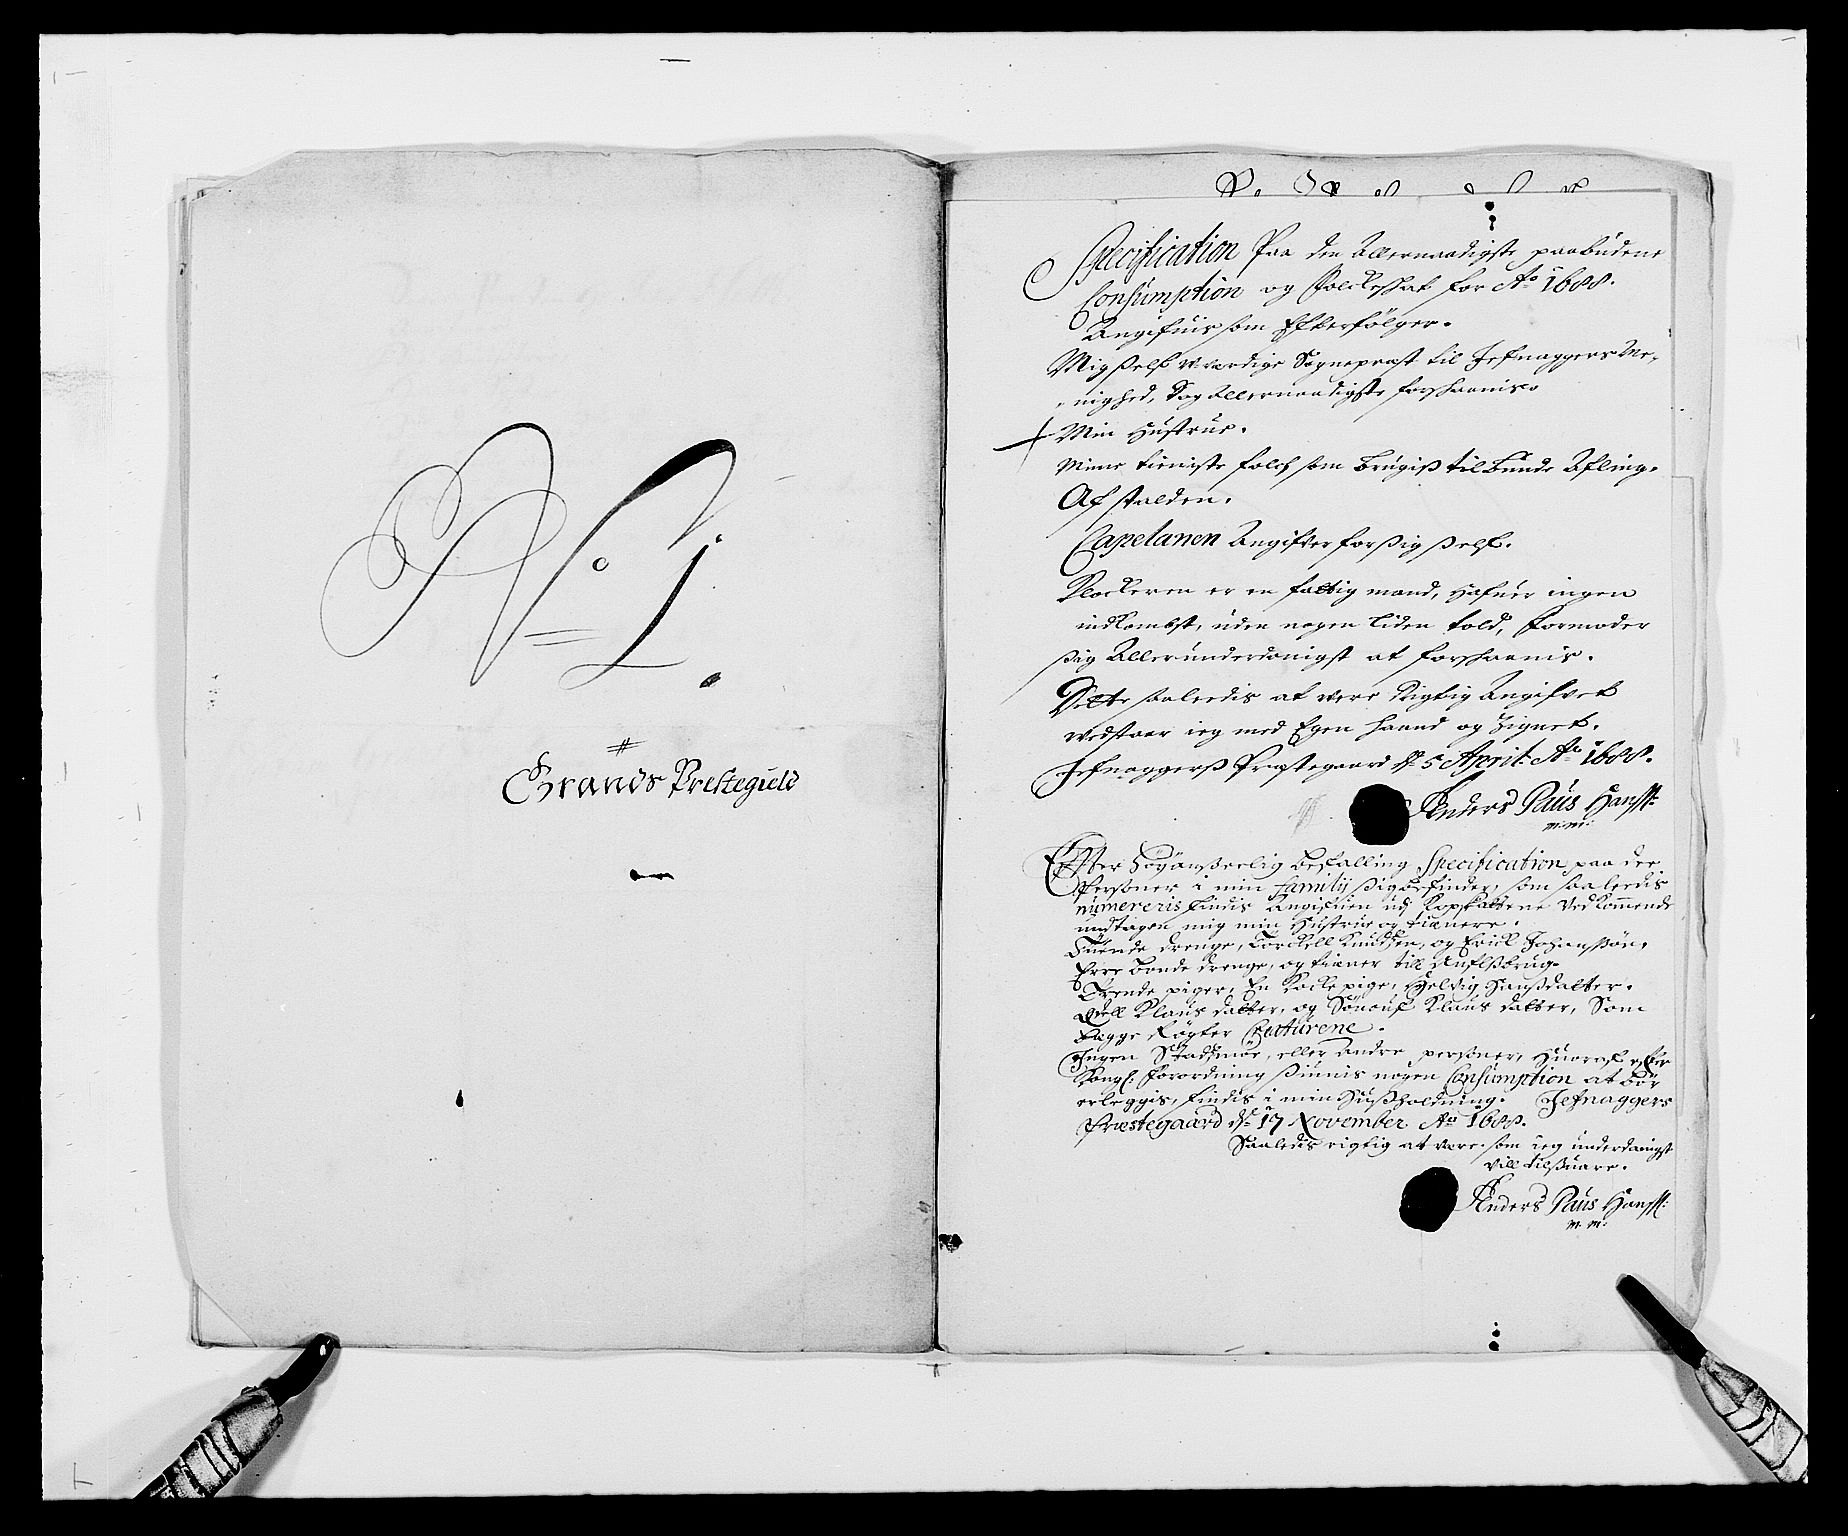 No 1.
Grans Prestegield
Specification Paa den Allernaadigste paabudene
Consumption og Folckeskat for Ao 1688.
Angifuis som Efterfölger.
Mig Self uværdige Sognepræst til Jefnaggers Me-
nighed, Dog Allernaadigste forskaanis.
Min Hustrue.
Mine tieniste folch som brugis til bunde Afling.
Af stalden.
Capelanen Angifver for sig self.
Klockeren er en fattig mand, hafuer ingen
indkombst, uden nogen liden told, formoder
sig Allerunderdanigst at forskaanis.
Dette saaledis at vere Rigtig Angifvet
vedstaar ieg med Egen haand og Zignet.
Jefnaggers Præstegaard d. 5 April Ao 1688.
Anders Paus Hanss:
m:m:
Efter Högönsherlig befalling Specification paa dee
Personer i min family sig befinder, som saaledis
numereris findis Angifuen udj Kopskattene Vedkommende
undtagen mig min Hustrue og tienere.
Tuende drenge, Torckell Knudsen, og Erick Johanssön,
Erre bonde drenge, og tiener till Aufls brug.
Trende piger, En Kocke pige, Heldvig Hansdatter.
Klaus datter, og Klaus datter, Som
begge Röگter Creaturene.
Ingen Stadsmöe, eller Andre personer, Huoraf efter
Kongl: forordning siunis nogen Consumption at bör
erleggis, findis i min Hussholdning. Jefnaggers
Præstegaard d. 17 November Ao 1688.
Saaledis rigtig at være som ieg underdanigst
vill tilsuare.
Anders Paus Hanss:
m: m: